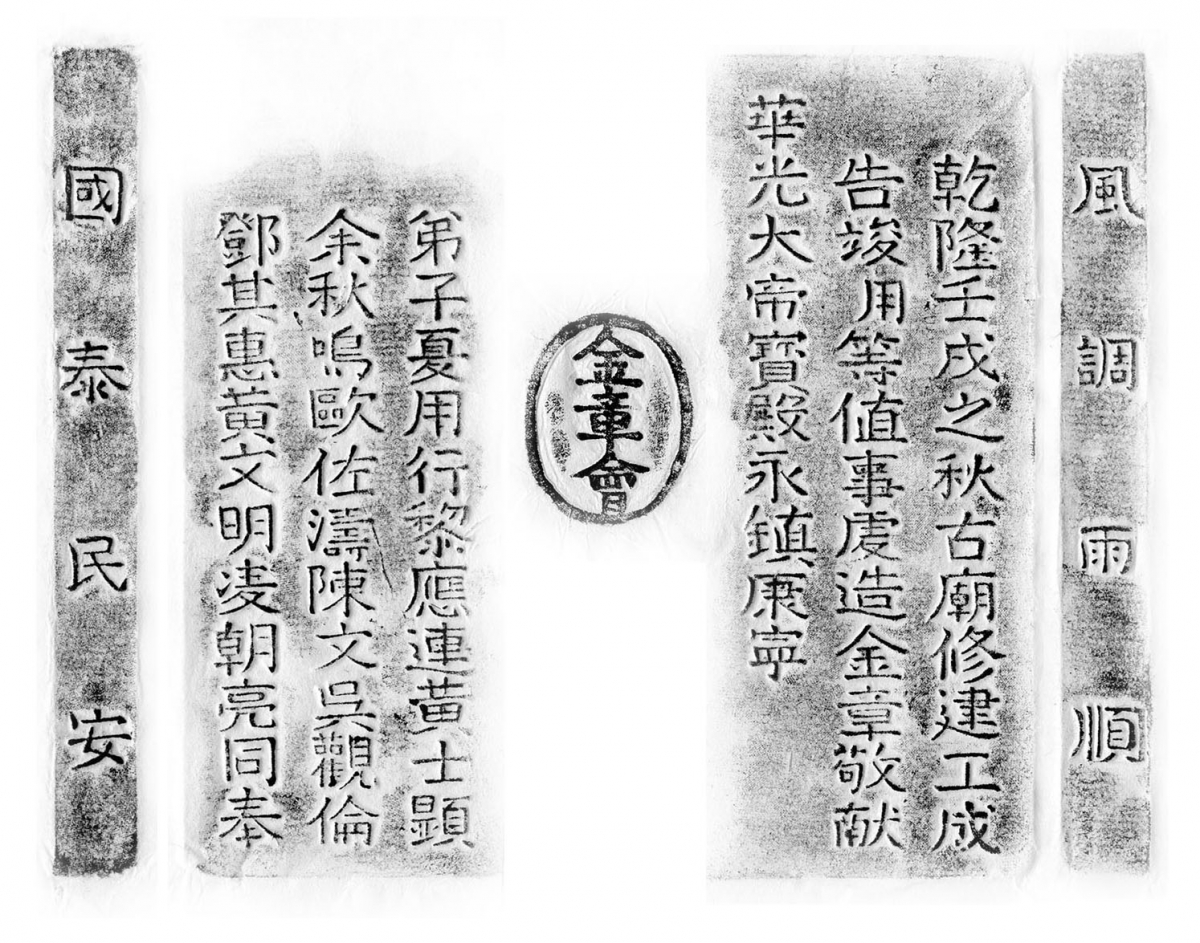 風調雨順
乾隆壬戌之秋古廟修建工成
告竣用等值事虔造金章敬献
華光大帝寳殿永鎮康寧
金章會
弟子夏用行黎應連黄士顕
余秋嗚歐佐濤陳文吳觀倫
鄧其惠黄文明凌朝亮同奉
國泰民安